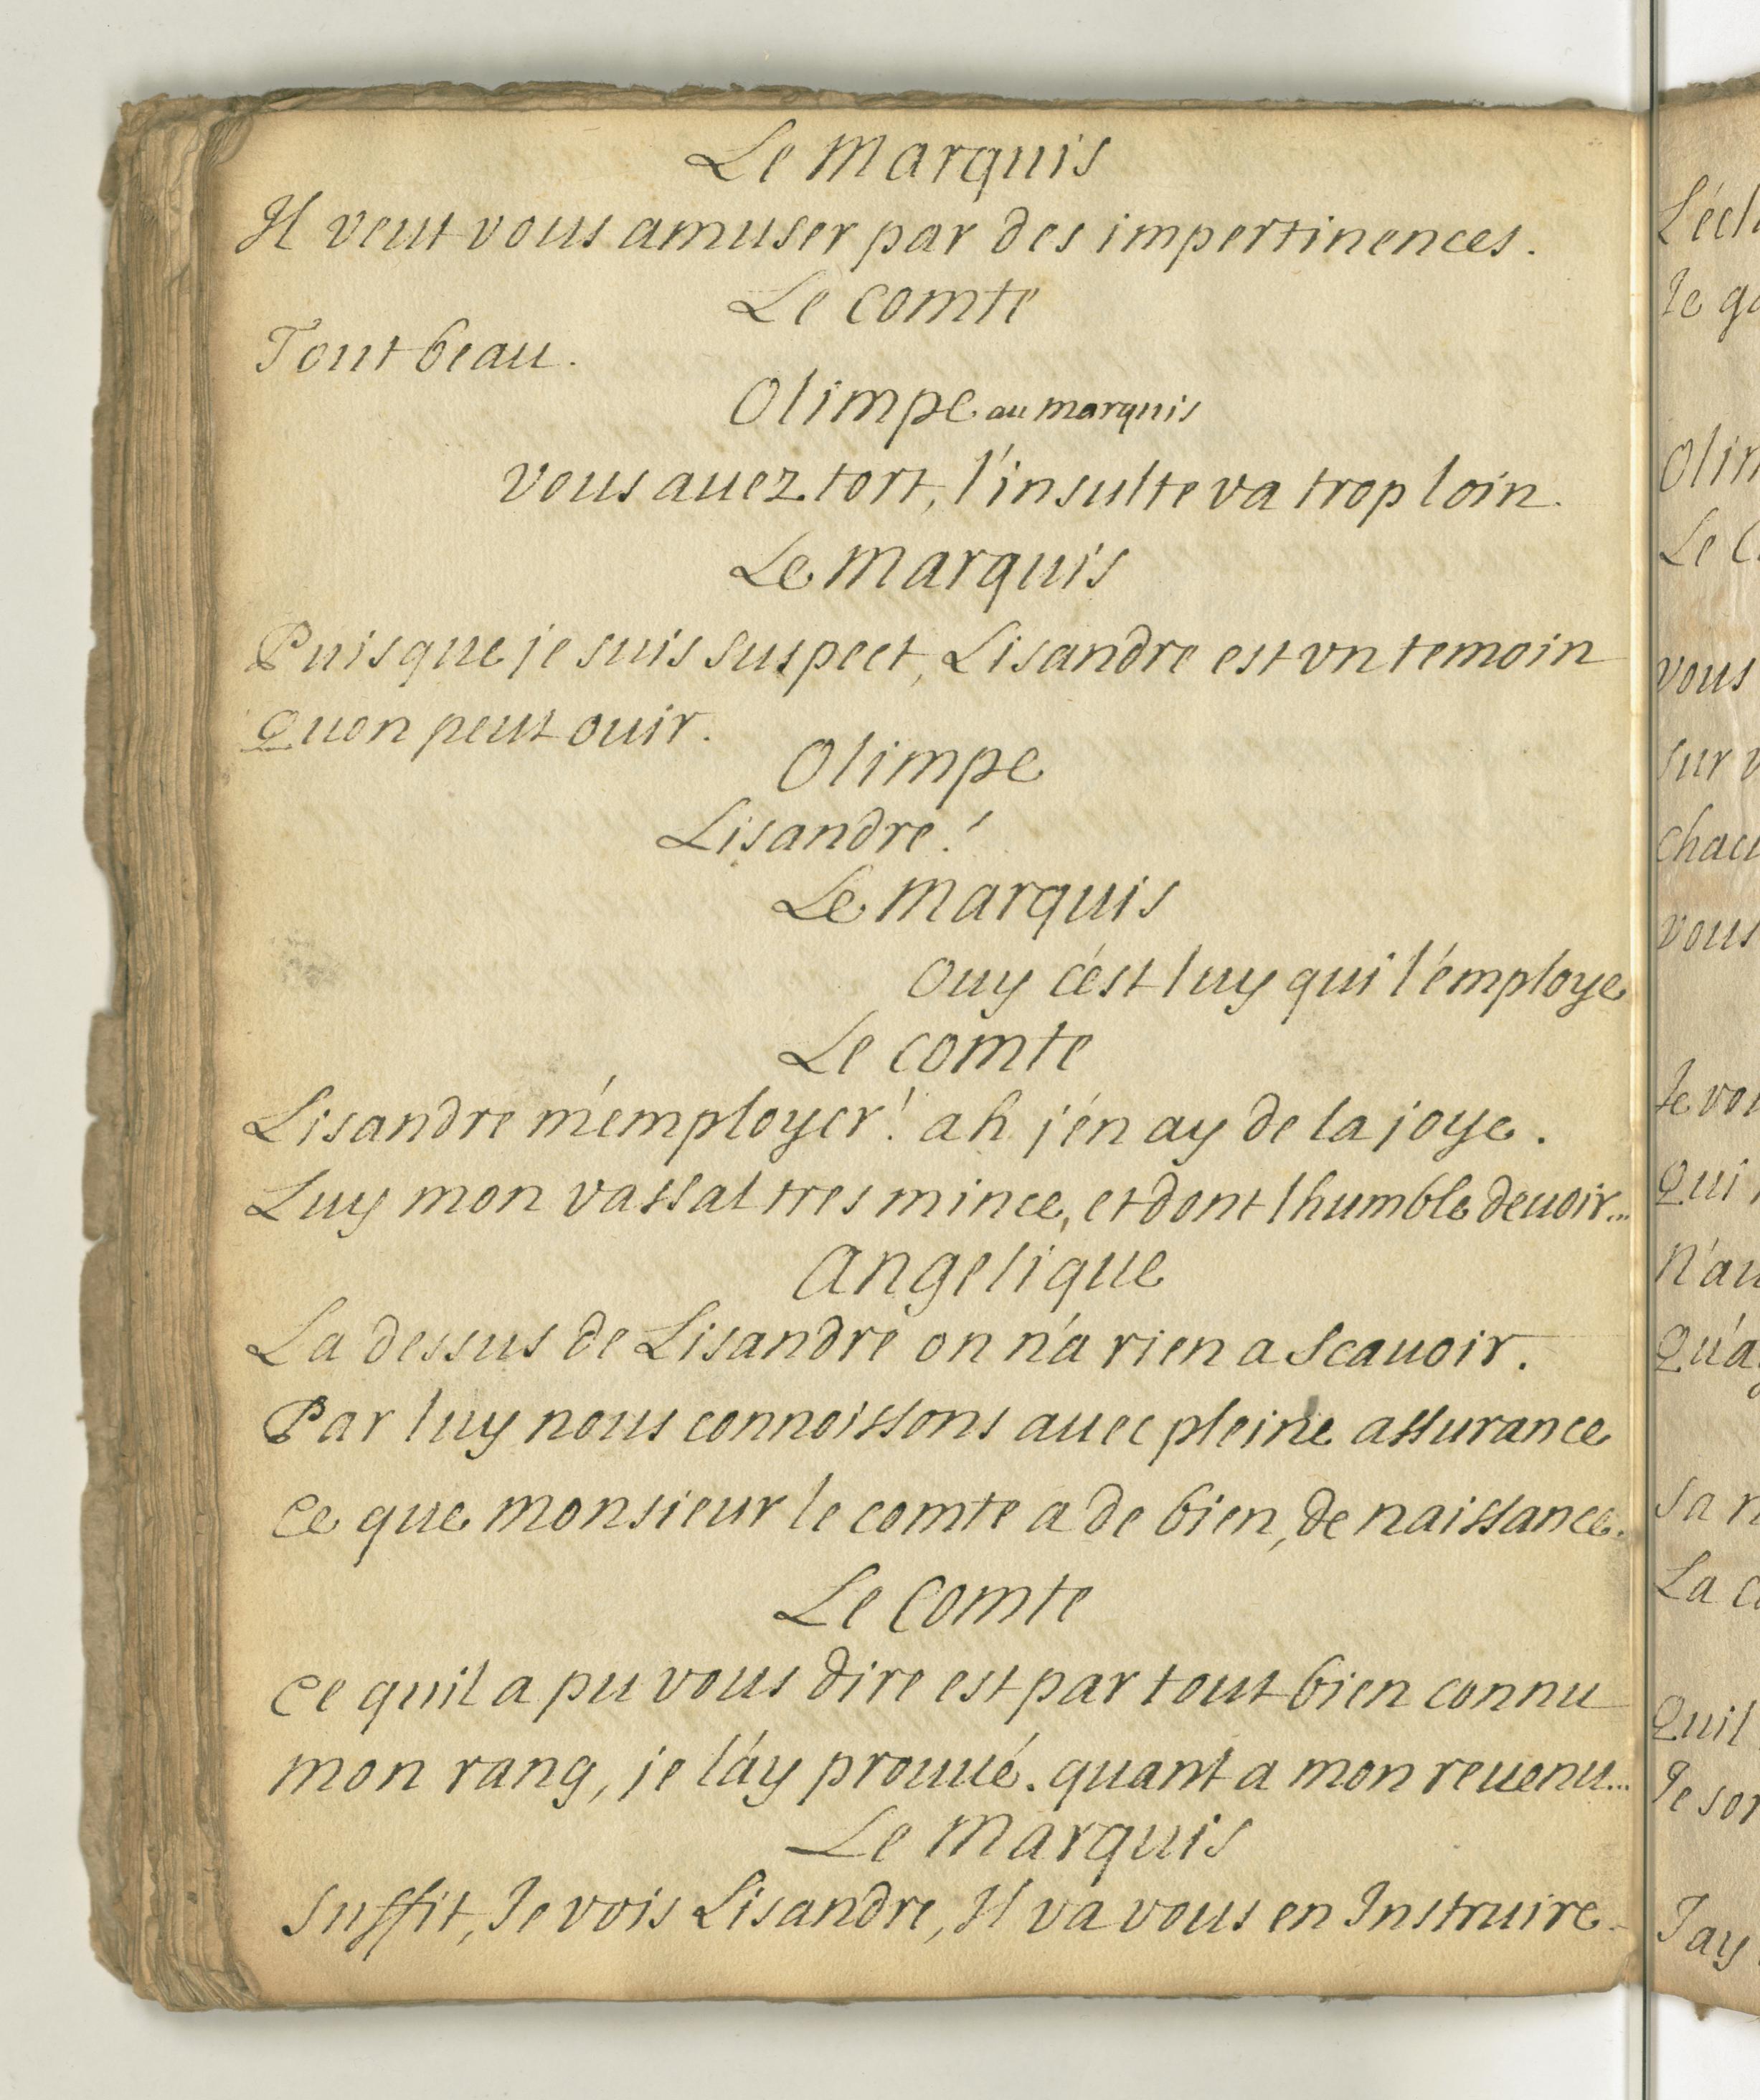 Le marquis
Il veut vous amuser par des impertinences.
Le comte
Tout beau.
Olimpe au marquis
vous auez tort, l'insulte va trop loin.
Le marquis
Puisque je suis suspect, Lisandre est vn temoin
Quon peut ouir.
Olimpe
Lisandre!
Le marquis
Ouy c'est luy qui l'employe
Le comte
Lisandre m'employer! ah j'en ay de la joye.
Luy mon vassal tres mince, et dont lhumble deuoir...
Angelique
La dessus de Lisandre on n'a rien a scauoir.
Par luy nous connoissons auec pleine assurance
Ce que monsieur le comte a de bien, de naissance.
Le Comte
Ce quil a pu vous dire est par tout bien connu
mon rang, je l'ay prouué. quant a mon reuenu...
Le marquis
Suffit, Je vois Lisandre, Il va vous en Instruire.
L'écl
Je g
Olim
Le C
vous
sur v
chacu
vous
Je vo
Qui
N'au
Qu'a
Sa r
La c
Quil
Je so
J'ay